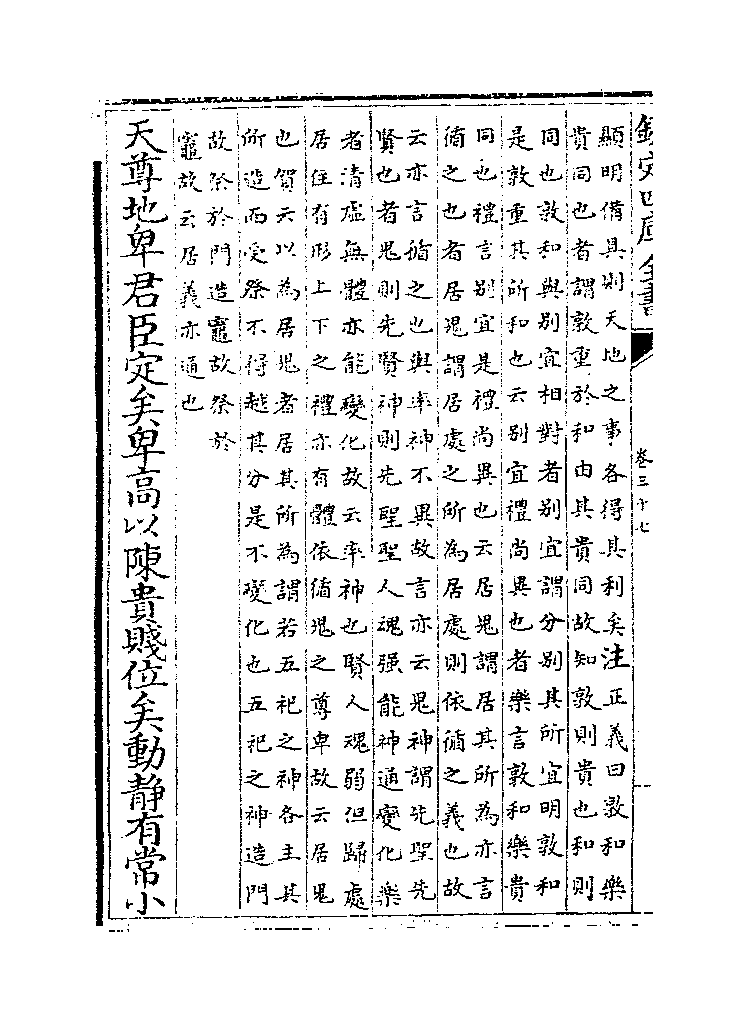 欽定四庫全書
卷三十七
顯明備具則天地之事各得其利矣注正義曰敦和樂
貴同也者謂敦重於和由其貴同故知敦則貴也和則
同也敦和與別宜相對者別宜謂分別其所宜明敦和
是敦重其所和也云別宜禮尚異也者樂言敦和樂貴
同也禮言別宜是禮尚異也云居鬼謂居其所為亦言
循之也者居鬼謂居處之所為居處則依循之義也故
云亦言循之也與率神不異故言亦云鬼神謂先聖先
賢也者鬼則先賢神則先聖聖人魂强能神通變化樂
者清虛無體亦能變化故云率神也賢人魂弱但歸處
居住有形上下之禮亦有體依循鬼之尊卑故云居鬼
也賀云以為居鬼者居其所為謂若五祀之神各主其
所造而受祭不得越其分是不變化也五祀之神造門
故祭於門造竈故祭於
竈故云居義亦通也
天尊地卑君臣定矣卑高以陳貴賤位矣動靜有常小